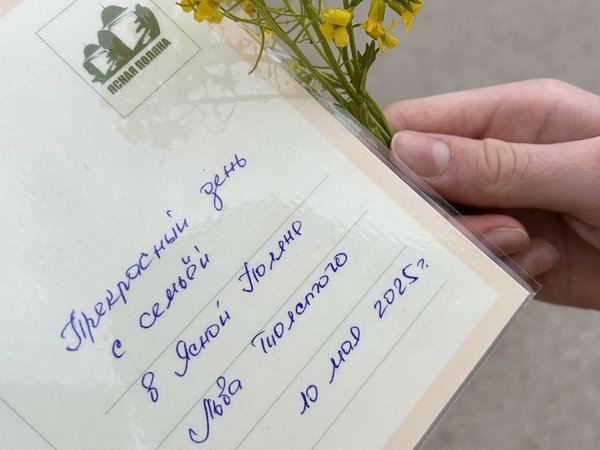 ЯСНАЯ ПОЛЯНА
Прекрасный день
с семьёй
в Ясной Поляне
Льва Толстого
10 мая 2025г.